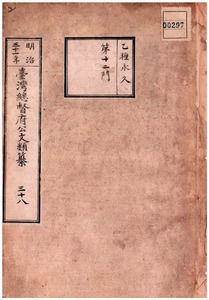 00297
乙種永久
第十二門
明治
三十一年
臺灣總督府公文類纂
三十八